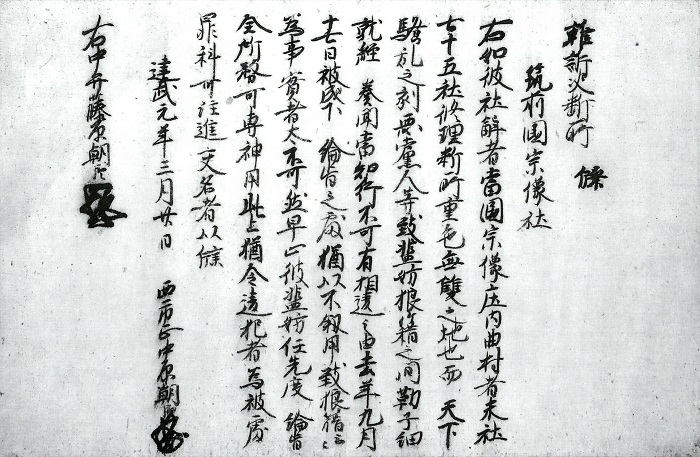 雑訴決断所 牒
筑前国宗像社
右如彼社解者当国宗像庄内曲村者末社
七十五社修理料所重色無雙之地也而 天下
騒乱之刻悪党人等致濫妨狼藉之間勒子細
就経 奏聞当知行不可有相違之由去年九月
十七日被成下 綸旨之処猶以不叙用致狼藉云々
為事実者太不可然早止彼濫妨任先度 綸旨
全所務可専神用此上猶令違犯者為被処
罪科可注進交名者以牒
建武元年三月廿日 西市正中原朝臣
右中弁藤原朝臣